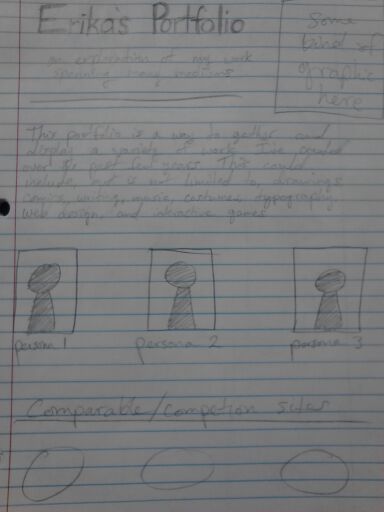 Erika's Portfolio
an exploration of my work
spanning many mediums
Some
kind of
graphic
here
This portfolio is a way to gather and
display a variety of work I've created
over the past few years. This could
include, but is not limited to, drawings
comics, writing, music, costumes, typography,
web design, and interactive games
persona 1
persona 2
persona 3
Comparable/competion sites